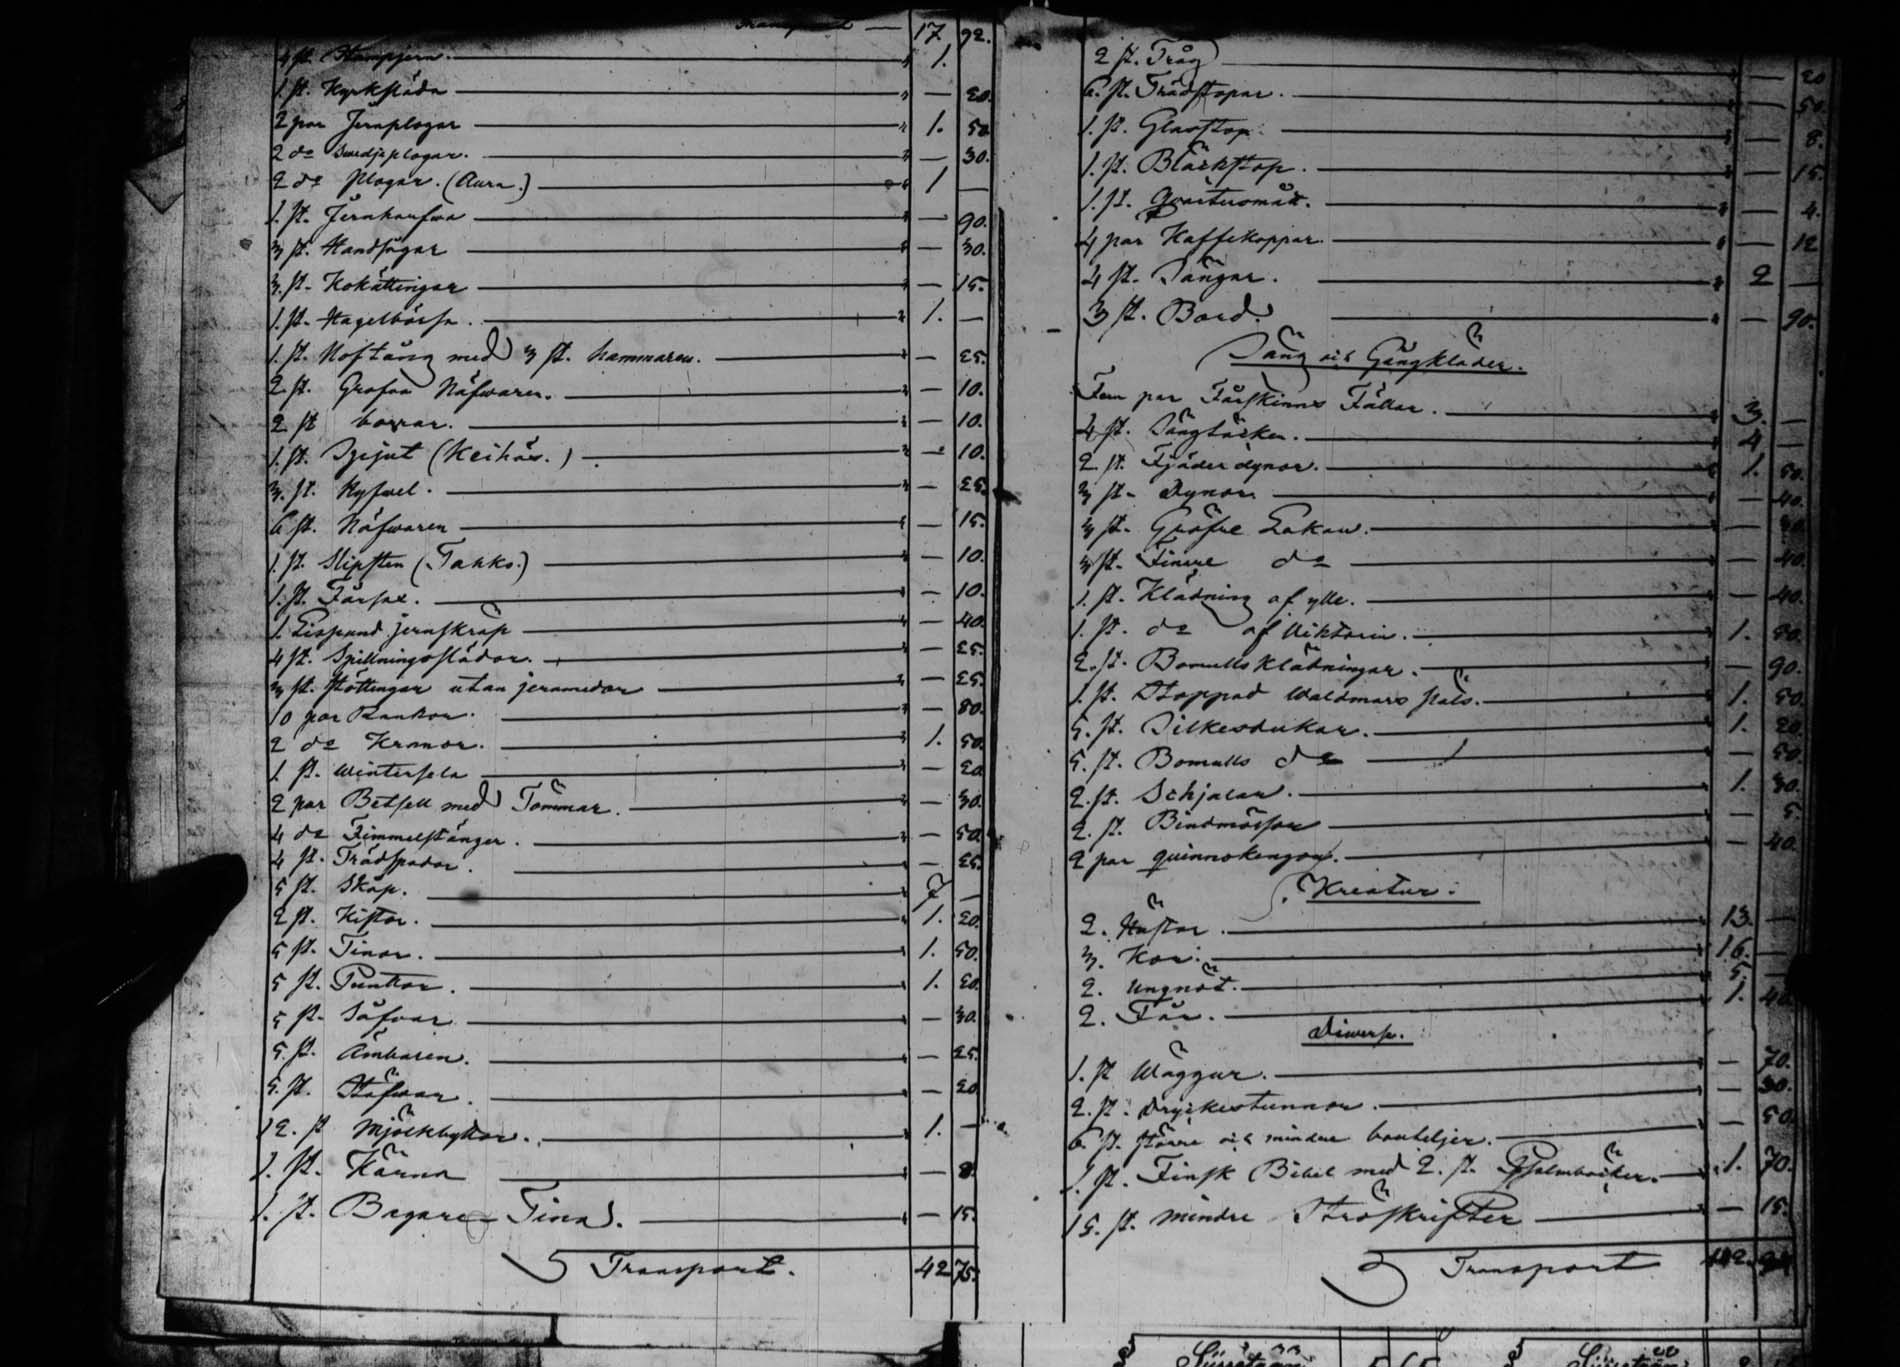 Transport — 17 92.
4 st. Stampjern. — 1.
1. st. Kyrksläda — — 20.
2 par Jernplogar — 1. 50
2 do Swedjeplogar. — — 30.
2 do plogar. (Aura.) — 1 —
1. st. Jernharfwa — — 90.
3 st. Handsågar — — 30.
3. st. Kokättingar — — 15.
1. st. Hagelbössa. — 1. —
1. st. Hoftång med 3 st. hammaren. — — 25.
2 st. Grofva Näfwaren. — — 10.
2 st borrar. — — 10.
1. st. Spjut (Keihäs.) — — 10.
3. st. Hyfvel. — — 25.
6 st. Näfwaren — — 15.
1. st. Slipsten (Tahko.) — — 10.
1. st. Fårsax. — — 10.
1. Lispund jernskrap — — 40.
4 st. Spillningsslädar. — — 25.
3 st. Stöttingar utan jernmedar — — 25.
10 par Rankor. — — 80.
2 do Kramor. — 1. 50.
1 st. Wintersela — — 20
2 par Betsell med Tömmar. — — 30.
4 do Fimmelstänger. — — 50.
4 st. Trädspadar. — — 25.
5 st. Skåp. — 7 —
2 st. Kistor. — 1. 20.
5 st. Tinor. — 1. 50.
5 st. Puntkar. — 1. 20.
5 st. Såfvar — — 30.
5. st. Ämbaren. — — 25.
5. st. Stäfwar. — — 20
12. st Mjölkbyttor. — 1. —
1. st. Kärna — — 8.
1. st. Bagare-Tina. — — 15.
Transport. 42 75.
2 st. Tråg — — 20
6. st. Trädstopar. — — 50.
1. st. Glasstop. — — 8.
1. st. Bläckstop. — — 15.
1. st. Qvartersmått. — — 4.
4 par Kaffekoppar. — — 12
4 st. Sängar. — 2 —
3 st. Bord. — — 90.
Säng och Gångkläder.
Fem par Fårskinns Fällar. — 3. —
4 st. Sängtäcken. — 4 —
2. st. Fjäderdynor. — 1. 50.
3 st. Dynor. — — 40.
3 st. Gröfre Lakan. —
3 st. Finare do — — 40.
1. st. Klädning af ylle. — — 40.
1. st. do af Viktoria. — 1. 80.
2. st. Bomullsklädningar. — — 90.
1. st. Stoppad Waldmars päls. — 1. 50.
5. st. Silkesdukar. — 1. 20.
5. st. Bomulls do — — 50.
2. st. Schjalar. — 1. 30.
2. st. Bindmössor — — 5.
2 par quinnokengor. — — 40.
Kreatur.
2. Hästar. — 13. —
3. Kor. — 16. —
2. ungnöt. — 5. —
2. Får. — 1. 40.
Diverse.
1. st Wäggur. — — 70.
2. st. Dryckestunnor. — — 30.
6. st. större och mindre bouteljer. — — 50.
1. st. Finsk Bibel med 2. st. Psalmböcker. — 1. 70.
15. st. mindre Ströskrifter — — 15.
Transport